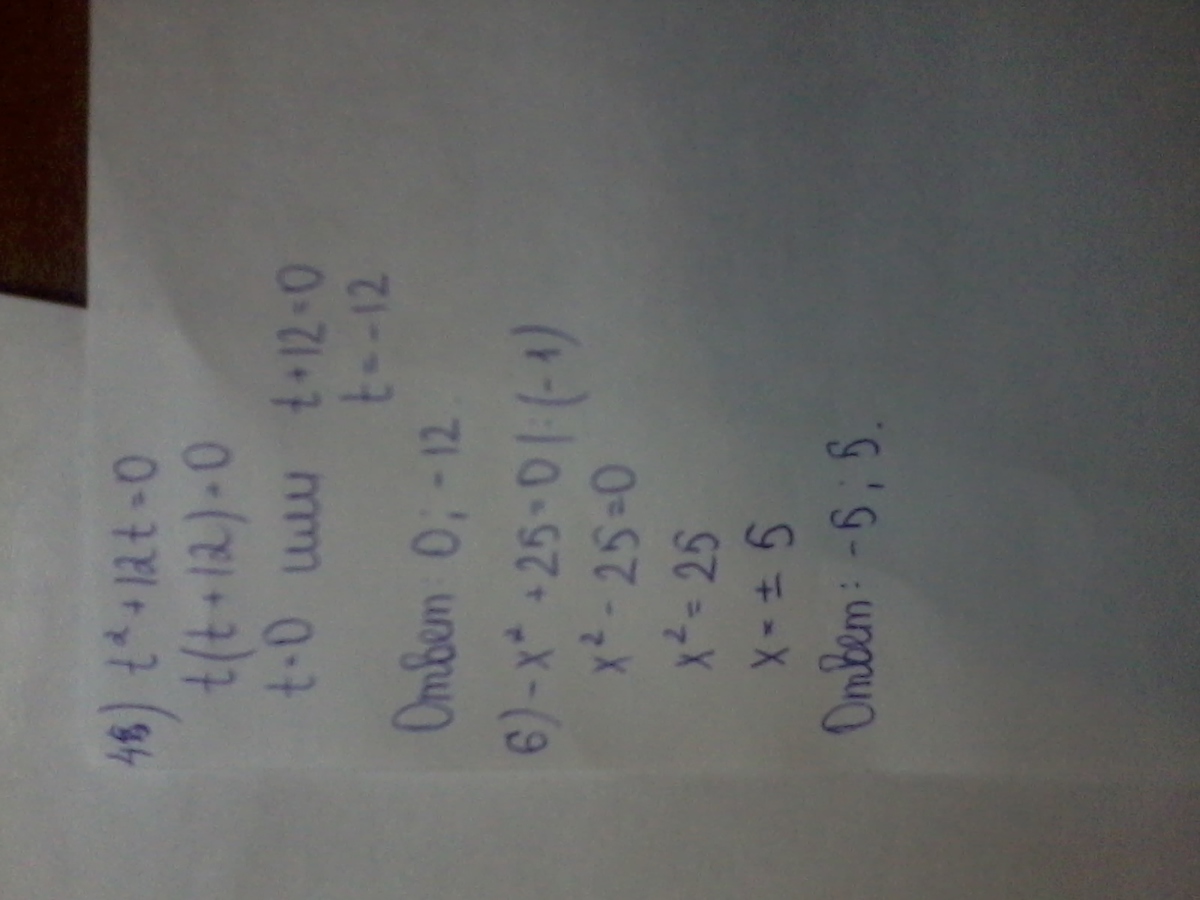 4в) t² + 12t = 0
t(t + 12) = 0
t = 0 или t + 12 = 0
t = -12
Ответ: 0; -12.
6) -x² + 25 = 0 | : (-1)
x² - 25 = 0
x² = 25
x = ± 5
Ответ: -5; 5.